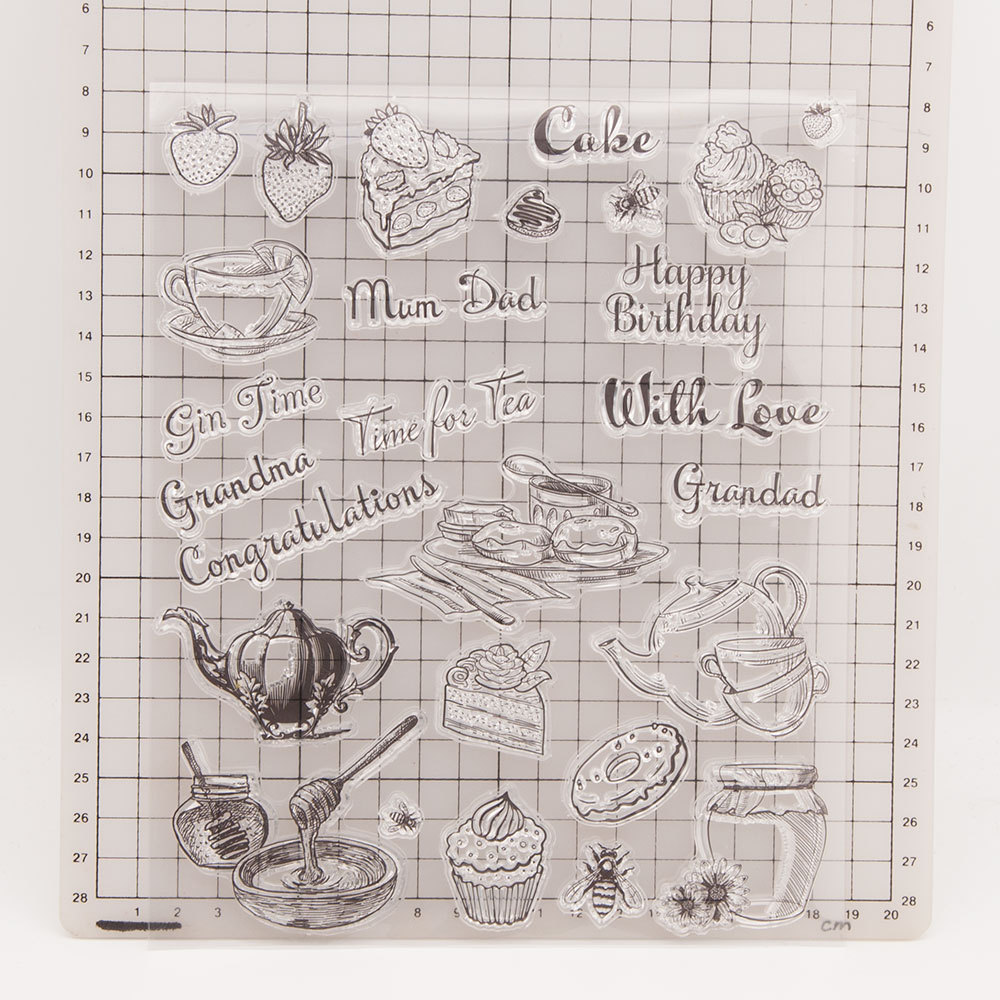 6
7
8
9
10
11
12
13
14
15
16
17
18
19
20
21
22
23
24
25
26
27
28
6
7
8
9
10
11
12
13
14
15
16
17
18
19
20
21
22
23
24
25
26
27
28
Cake
Mum Dad
Happy
Birthday
Gin Time
Time for Tea
With Love
Grandma
Grandad
Congratulations
1 2 3 8 9 18 19 20
cm